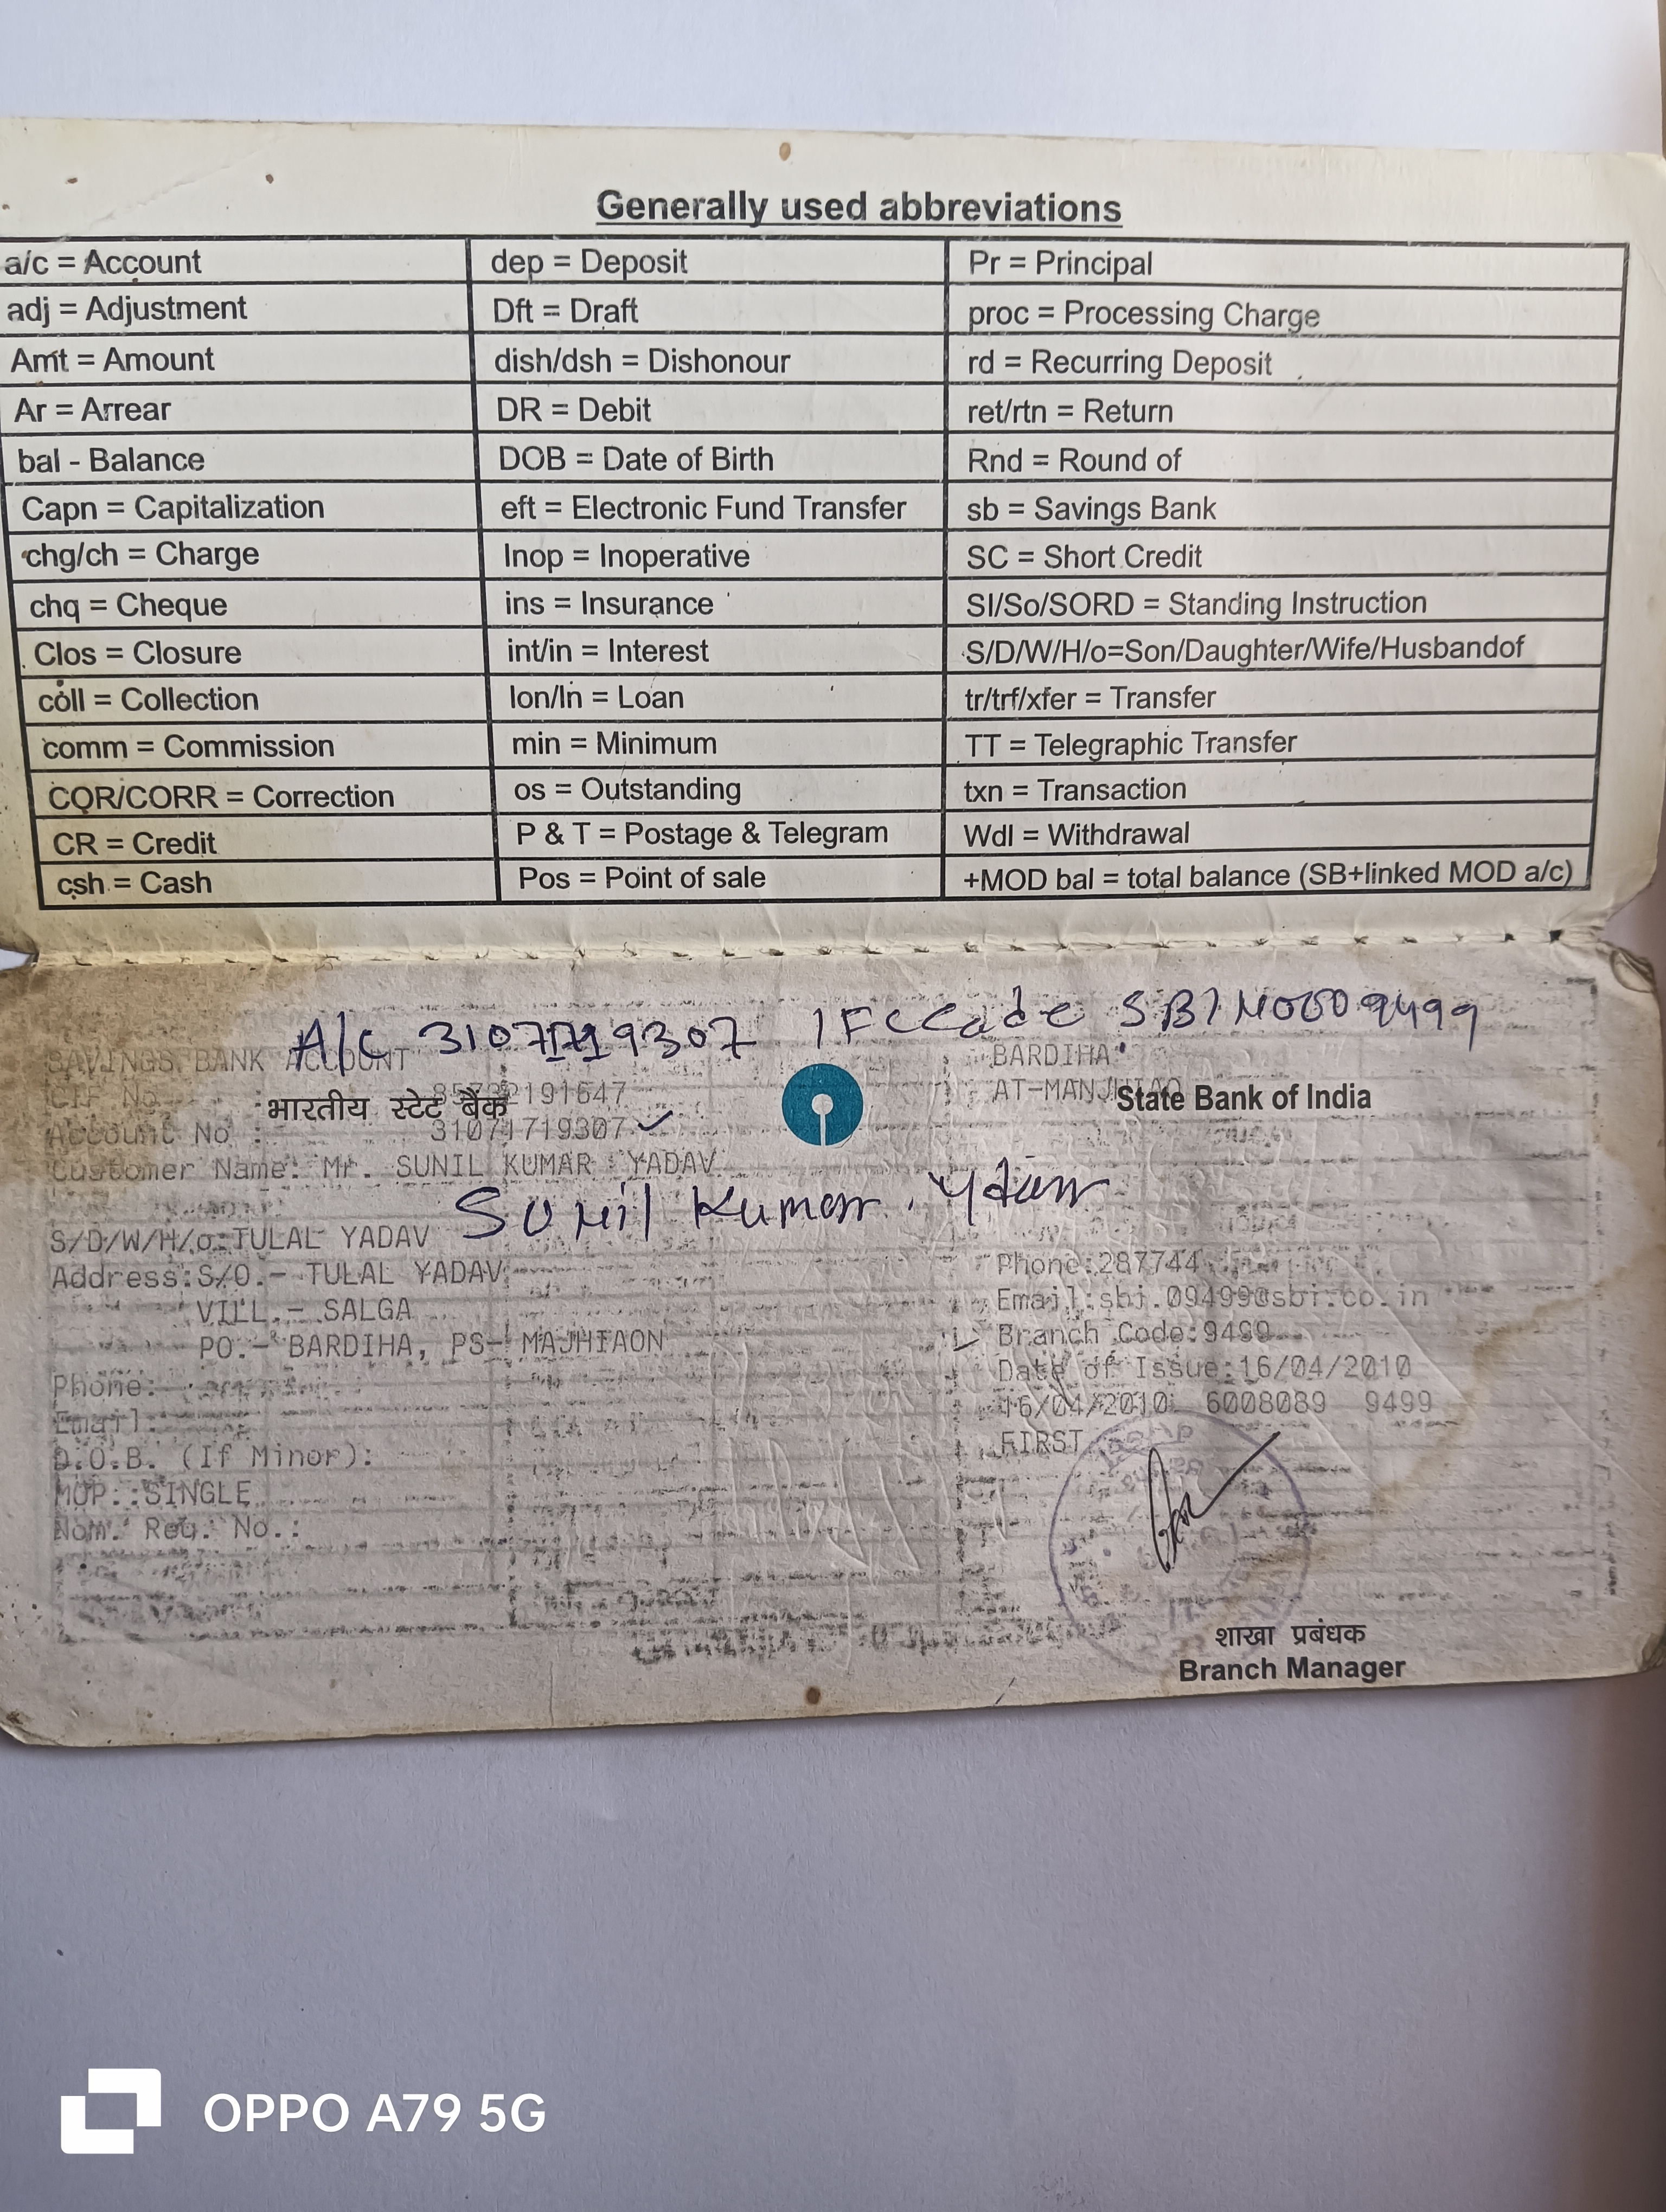 Generally used abbreviations
a/c = Account
dep = Deposit
Pr = Principal
adj = Adjustment
Dft = Draft
proc = Processing Charge
Amt = Amount
dish/dsh = Dishonour
rd = Recurring Deposit
Ar = Arrear
DR = Debit
ret/rtn = Return
bal - Balance
DOB = Date of Birth
Rnd = Round of
Capn = Capitalization
eft = Electronic Fund Transfer
sb = Savings Bank
chg/ch = Charge
Inop = Inoperative
SC = Short Credit
chq = Cheque
ins = Insurance
SI/So/SORD = Standing Instruction
Clos = Closure
int/in = Interest
S/D/W/H/o=Son/Daughter/Wife/Husbandof
coll = Collection
lon/ln = Loan
tr/trf/xfer = Transfer
comm = Commission
min = Minimum
TT = Telegraphic Transfer
COR/CORR = Correction
os = Outstanding
txn = Transaction
CR = Credit
P & T = Postage & Telegram
Wdl = Withdrawal
csh = Cash
Pos = Point of sale
+MOD bal = total balance (SB+linked MOD a/c)
A/C 31071719307
SAVINGS BANK ACCOUNT
BARDIHA
CIF No
AT-
भारतीय स्टेट बैंक
State Bank of India
Account No : 31071719307
Customer Name: Mr. SUNIL KUMAR YADAV
Sunil Kumar
S/D/W/H/o:TULAL YADAV
Phone:287744
Address:S/O.- TULAL YADAV
Email:sbi.09499@sbi.co.in
VILL.- SALGA
Branch Code:9499
PO.- BARDIHA, PS- MAJHIAON
Date of Issue:16/04/2010
Phone:
16/04/2010 6008089 9499
Email:
FIRST
D.O.B. (If Minor):
MOP::SINGLE
Nom. Reg. No.:
शाखा प्रबंधक
Branch Manager
OPPO A79 5G